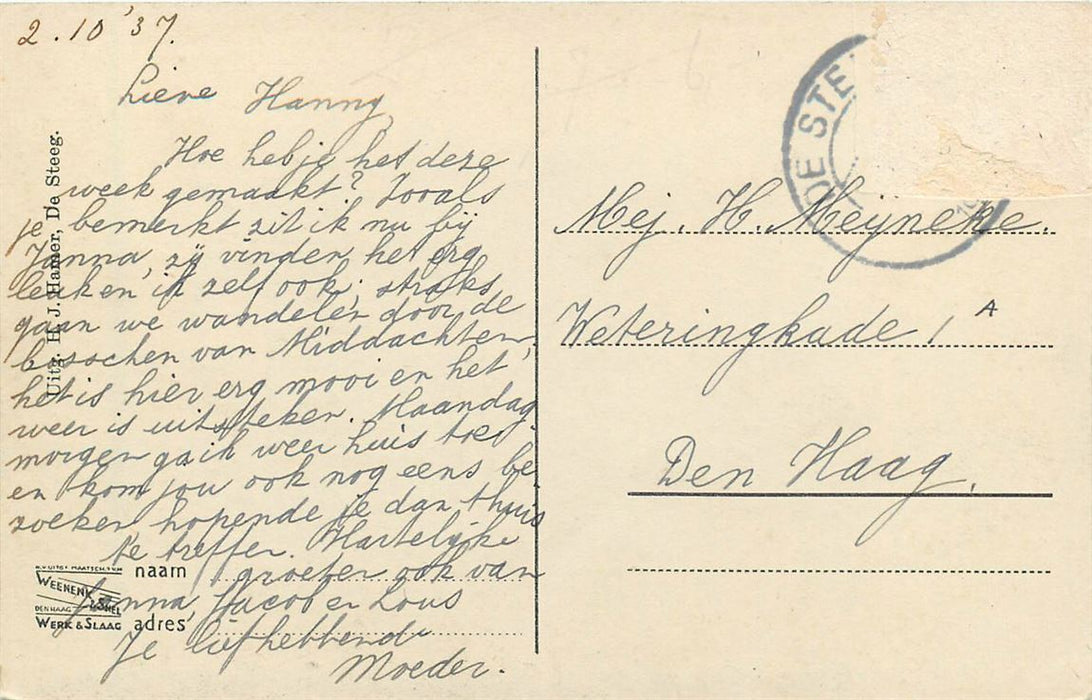 2.10'37.
Lieve Hanny
Hoe heb je het deze
week gemaakt? Zooals
je bemerkt zit ik nu bij
Janna, zij vinden het erg
leuk en ik zelf ook, straks
gaan we wandelen door de
bosschen van Middachten,
het is hier erg mooi en het
weer is uitsteken. Maandag
morgen ga ik weer huis toe
en kom jou ook nog eens be
zoeken hopende je dan thuis
te treffen. Hartelijke
groeten ook van
Janna, Jacob en Lous
Je liefhebbende
Moeder.
Uitg. H. J. Hamer, De Steeg.
N.V. UITG. MAATSCH. T.V.H.
WEENENK & SNEL
DEN HAAG
WERK & SLAAG
naam
adres
DE STE
Mej. H. Meyneke.
Weteringkade 1 A
Den Haag.